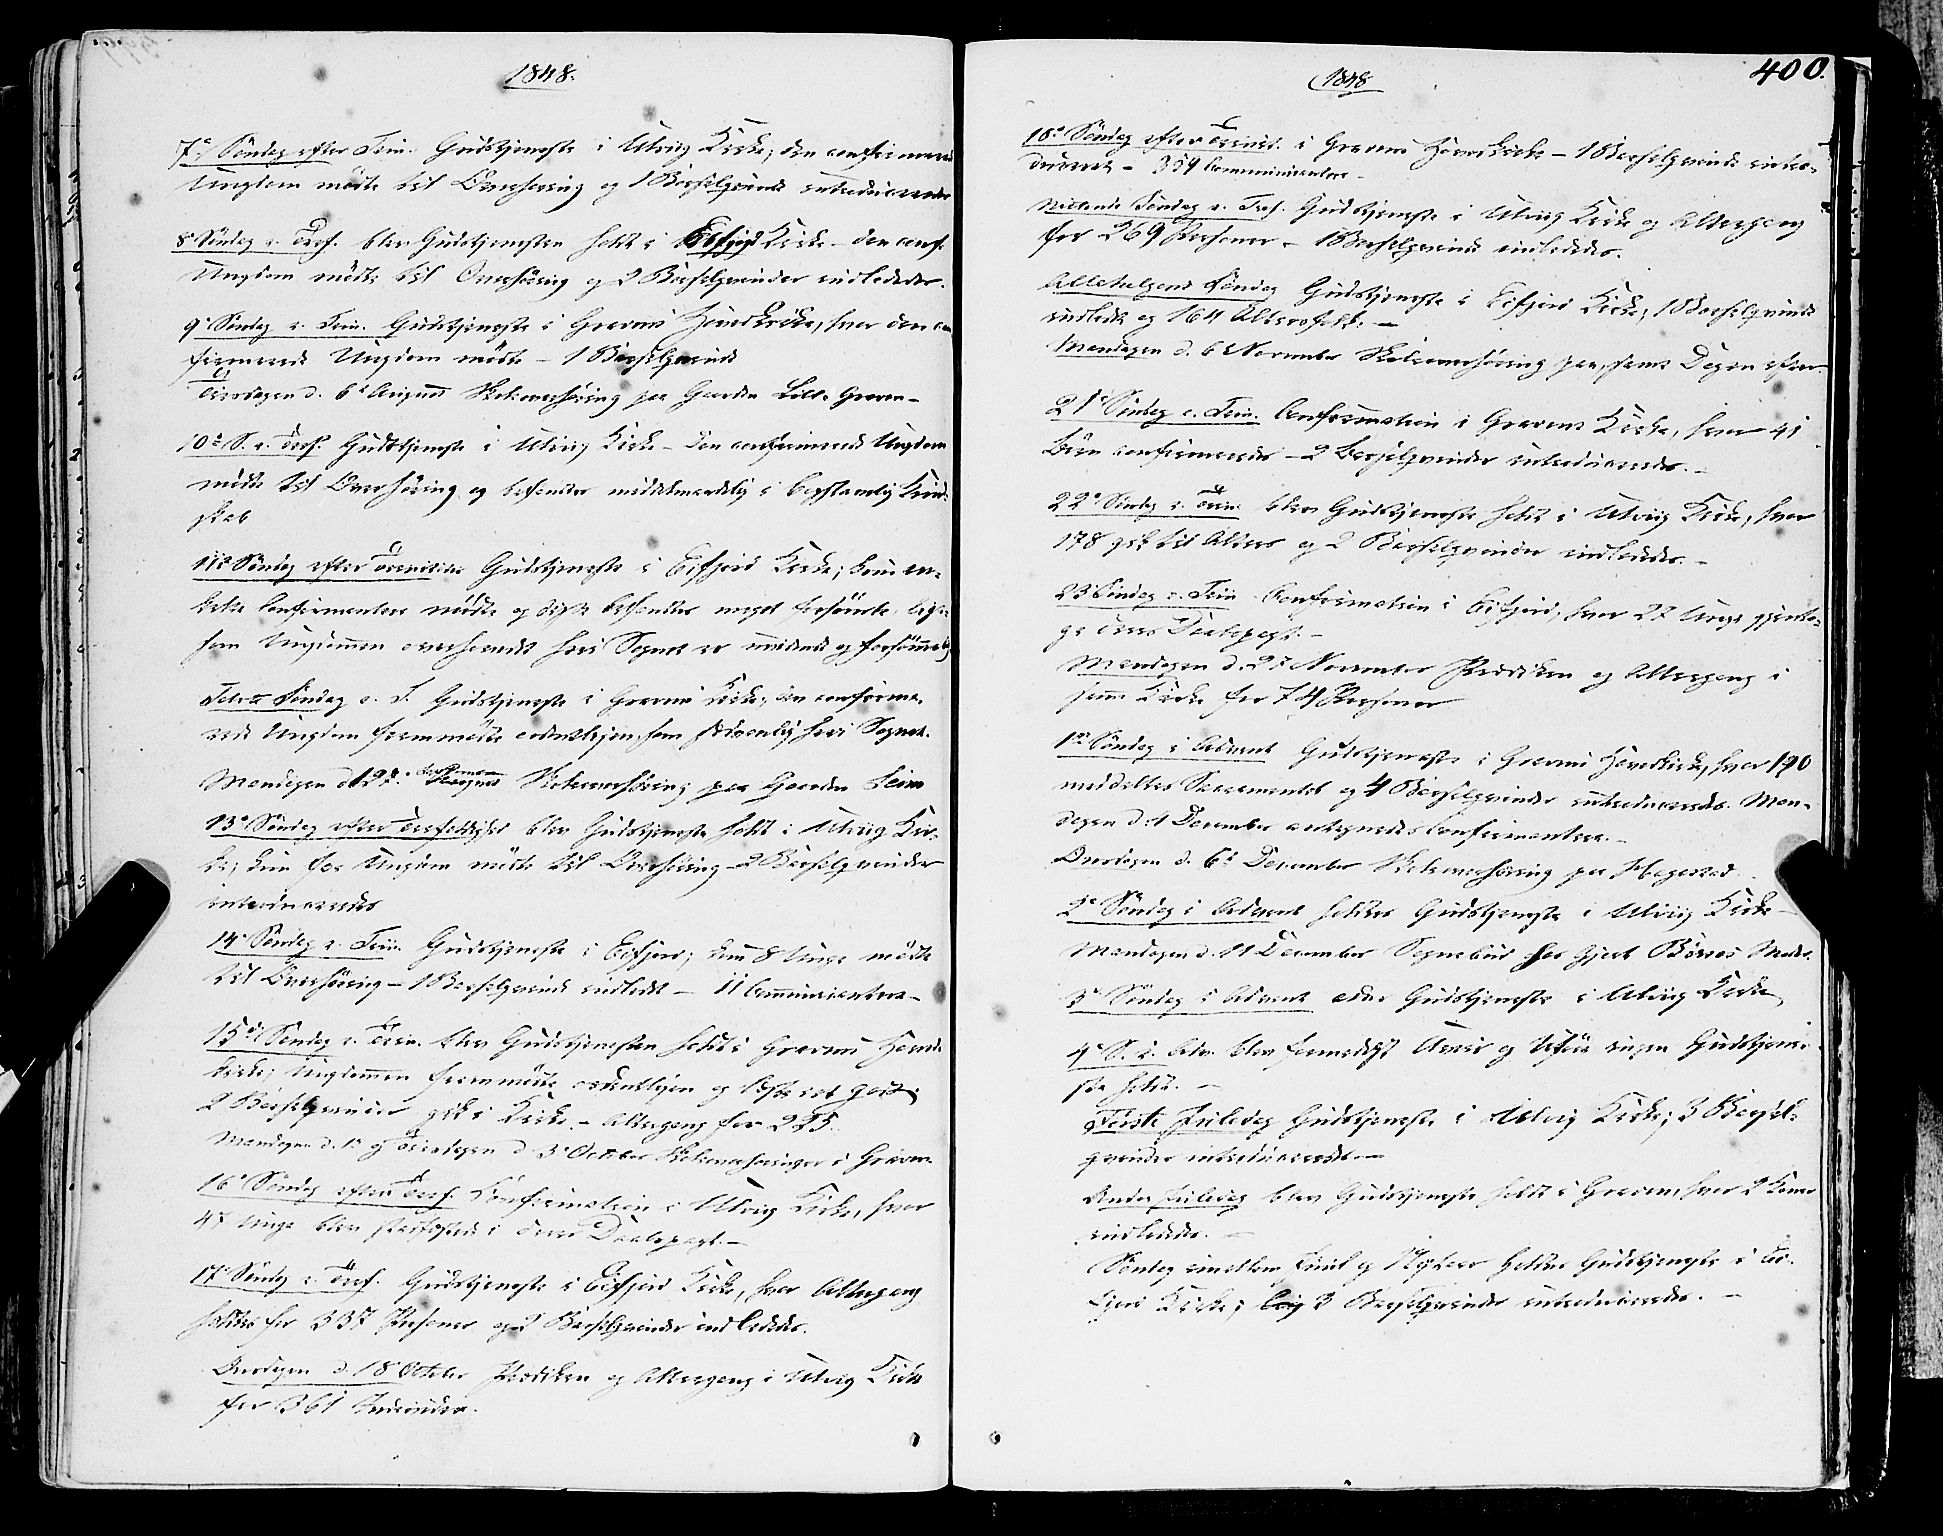 1848.
7de Söndag efter Trin. Gudstjeneste i Ulvig Kirke; den confirmerede
Ungdom mödte til Overhöring og 1 Barselqvinde introduceredes
8de Söndag e. Tref. blev Gudstjenesten holdt i Eifjord Kirke – den conf.
Ungdom mödte til Overhöring og 2 Barselqvinder indlededes.
9de Söndag e. Trin. Gudstjeneste i Gravens Hovedkirke, hvor den con
firmerede Ungdom mödte – 1 Barselqvinde
Tirsdagen d. August Skoleoverhöring paa Gaarden Lille Graven –
10de S. e. Tref. Gudstjeneste i Ulvig Kirke – Den confirmerede Ungdom
mödte til Overhöring og befandtes middelmaadelig i Christendoms Kund
skab
11te Söndag efter Trinitatis Gudstjeneste i Eifjord Kirke; kun en-
kelte Confirmanter mödte og disse befandtes meget forsömte, lige-
som Ungdommen overhovedet i Sognet er og forsömmelig
Tolvte Söndag e. T. Gudstjeneste i Gravens Kirke; den confirme-
rede Ungdom fremmödte ordentligen som sædvanlig i Sognet.
Mandagen d. Skoleoverhöring paa Gaarden Seim
13de Söndag efter Trefoldighed blev Gudstjeneste holdt i Ulvig Kir-
ke; kun faa Ungdom mödte til Overhöring – 2 Barselqvinder
introduceredes
14de Söndag e. Trin. Gudstjeneste i Eifjord; kun 8 Unge mödte
til Overhöring – 1 Barselqvinde indledt – 11 Communicantere –
15de Söndag e. Trin. blev Gudstjenesten holdt i Gravens Hoved
kirke; Ungdommen fremmödte ordentligen og læste ret godt;
2 Barselqvinder gik i Kirke. – Altergang for 225.
Mandagen d. 2 og Tirsdagen d. 3 October Skoleoverhöringer i Graven
16de Söndag efter Tref. Confirmation i Ulvig Kirke, hvor
47 Unge blev stadfæstede i deres Daabspagt. –
17de Söndag e. Tref. Gudstjeneste i Eifjord Kirke, hvor Altergang
holdtes for 337 Personer og 2 Barselqvinder indlededes.
Onsdagen d. 18 October Prædiken og Altergang i Ulvig Kirke
for 361 Individer.
1848
400.
18de Söndag efter Trinit. i Gravens Hovedkirke – 1 Barselqvinde intro-
duceret – 354 Communicantere –
Nittende Söndag e. Tref. Gudstjeneste i Ulvig Kirke og Altergang
for 269 Personer – 1 Barselqvinde indlededes.
Allehelgens Söndag Gudstjeneste i Eifjord Kirke, 1 Barselqvinde
indledt og 164 Altersfolk. –
Mandagen d. 6 November Skoleoverhöring sammesteds Dagen efter
21de Söndag e. Trin. Confirmation i Gravens Kirke, hvor 41
Börn confirmeredes – 2 Barselqvinder introduceredes. –
22de Söndag e. Trin. blev Gudstjeneste holdt i Ulvig Kirke, hvor
178 gik til Alters og 2 Barselqvinder indlededes. –
23de Söndag e. Trin Confirmation i Eifjord, hvor 27 Unge gjento-
ge deres Daabspagt. –
Mandagen d. 27 November Prædiken og Altergang i
samme Kirke for 74 Personer
1ste Söndag i Advent Gudstjeneste i Gravens Hovedkirke, hvor 190
meddeltes Sacramentet og 4 Barselqvinder introduceredes. Man-
dagen d. 4 December antegnedes Confirmantere. –
Onsdagen d. 6te December Skoleoverhöring paa Hagestad.
2de Söndag i Advent holdtes Gudstjeneste i Ulvig Kirke –
Mandagen d. 11 December Sognebud
3de Söndag i Advent Gudstjeneste i Ulvig Kirke
4de S. i. Adv. blev formedelst Uveir og Uföre ingen Gudstjene-
ste holdt. –
Förste Juledag Gudstjeneste i Ulvig Kirke; 3 Barsel-
qvinder introduceredes. –
Anden Juledag blev Gudstjeneste holdt i Graven, hvor 2 Koner
indlededes. –
Söndag imellem Juul og Nytaar holdtes Gudstjeneste i Ei-
fjord Kirke; 3 Barselqvinder introduceredes. –